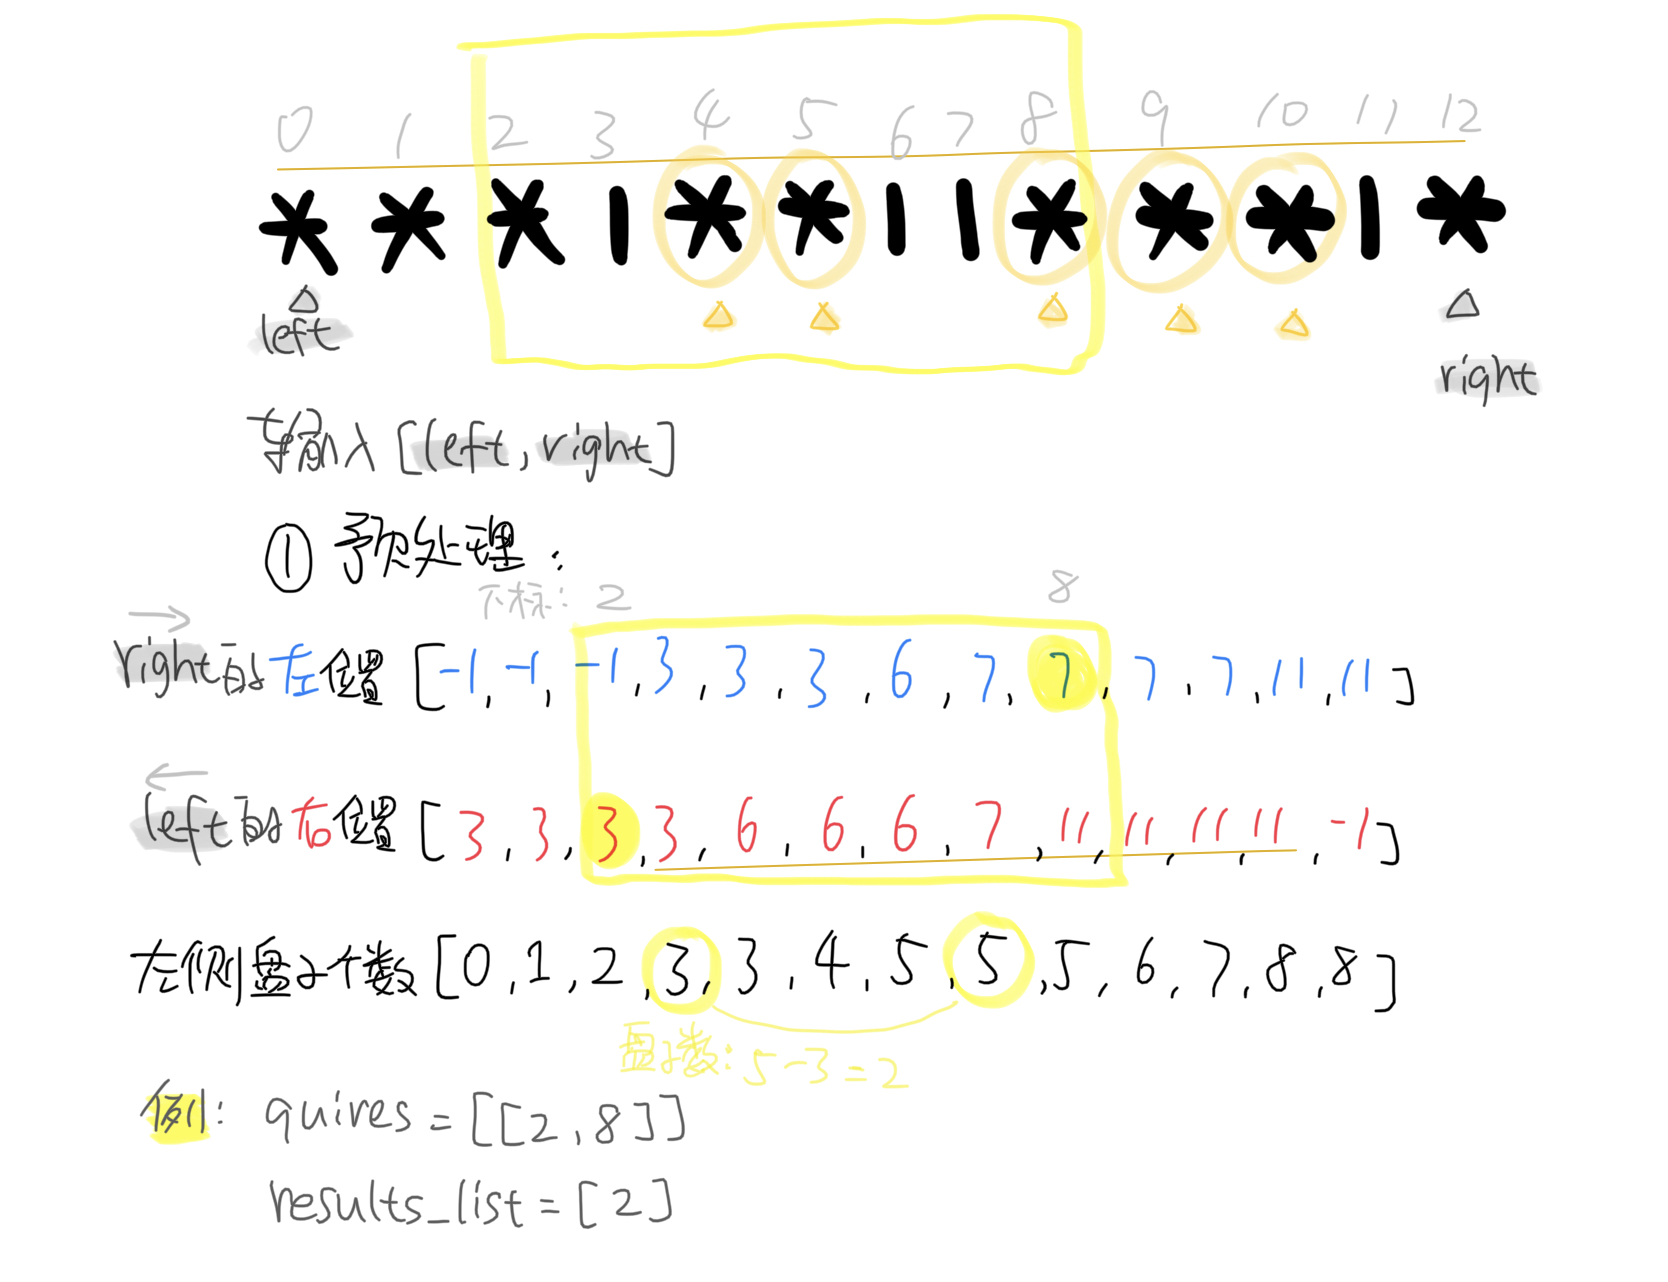 0 1 2 3 4 5 6 7 8 9 10 11 12
* * * | * * | | * * * | *
left
right
输入[left, right]
① 预处理:
下标: 2 8
right的左位置 [-1, -1, -1, 3, 3, 3, 6, 7, 7, 7, 7, 11, 11]
left的右位置 [3, 3, 3, 3, 6, 6, 6, 7, 11, 11, 11, 11, -1]
左侧盘子个数 [0, 1, 2, 3, 3, 4, 5, 5, 5, 6, 7, 8, 8]
盘子数: 5-3=2
例: quires = [[2, 8]]
results_list = [2]